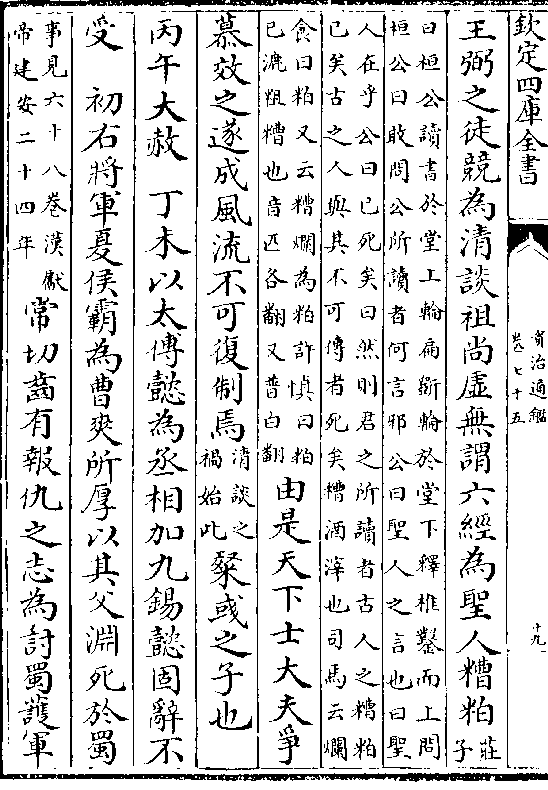 欽定四庫全書
資治通鑑
卷七十五
十九
王弼之徒競為清談祖尚虛無謂六經為聖人糟粕莊子
曰桓公讀書於堂上輪扁斲輪於堂下釋椎鑿而上問
桓公曰敢問公所讀者何言邪公曰聖人之言也曰聖
人在乎公曰已死矣曰然則君之所讀者古人之糟粕
已矣古之人與其不可傳者死矣糟酒滓也司馬云爛
食曰粕又云糟爛為粕許慎曰粕
已漉粗糟也音匹各翻又普白翻
由是天下士大夫爭
慕效之遂成風流不可復制焉清談之禍始此粲彧之子也
丙午大赦 丁未以太傅懿為丞相加九錫懿固辭不
受 初右將軍夏侯霸為曹爽所厚以其父淵死於蜀
事見六十八卷漢獻
帝建安二十四年
常切齒有報仇之志為討蜀護軍